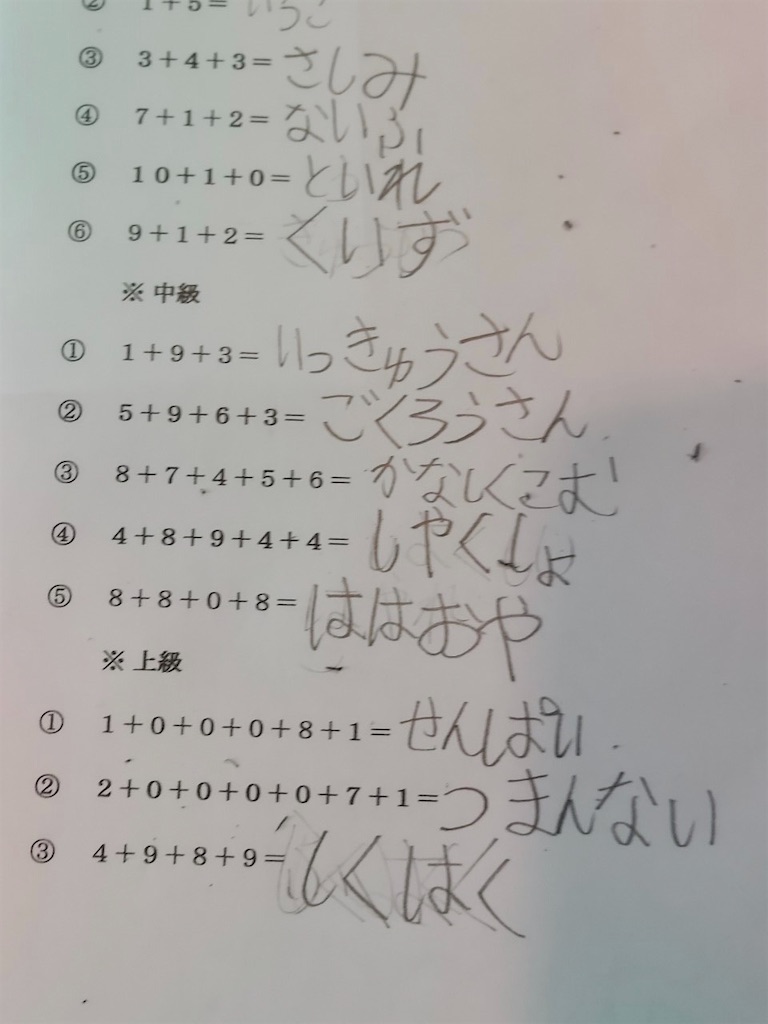 ② 1+5= いちご
③ 3+4+3= さしみ
④ 7+1+2= ないふ
⑤ 10+1+0= といれ
⑥ 9+1+2= くいず
※ 中級
① 1+9+3= いっきゅうさん
② 5+9+6+3= ごくろうさん
③ 8+7+4+5+6= かなしくこむ
④ 4+8+9+4+4= しやくしょ
⑤ 8+8+0+8= ははおや
※ 上級
① 1+0+0+0+8+1= せんぱい
② 2+0+0+0+0+7+1= つまんない
③ 4+9+8+9= しくはく